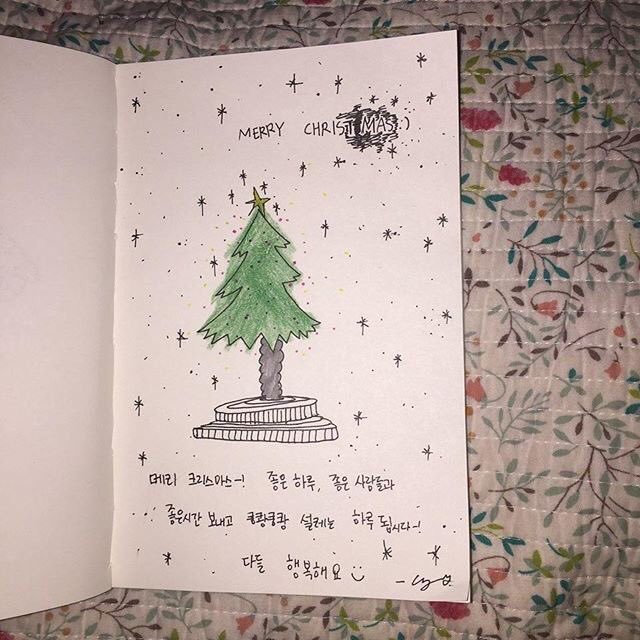 MERRY CHRISTMAS :)
메리 크리스마스~! 좋은 하루, 좋은 사람들과
좋은시간 보내고 쿵쾅쿵쾅 설레는 하루 됩시다~!
다들 행복해요